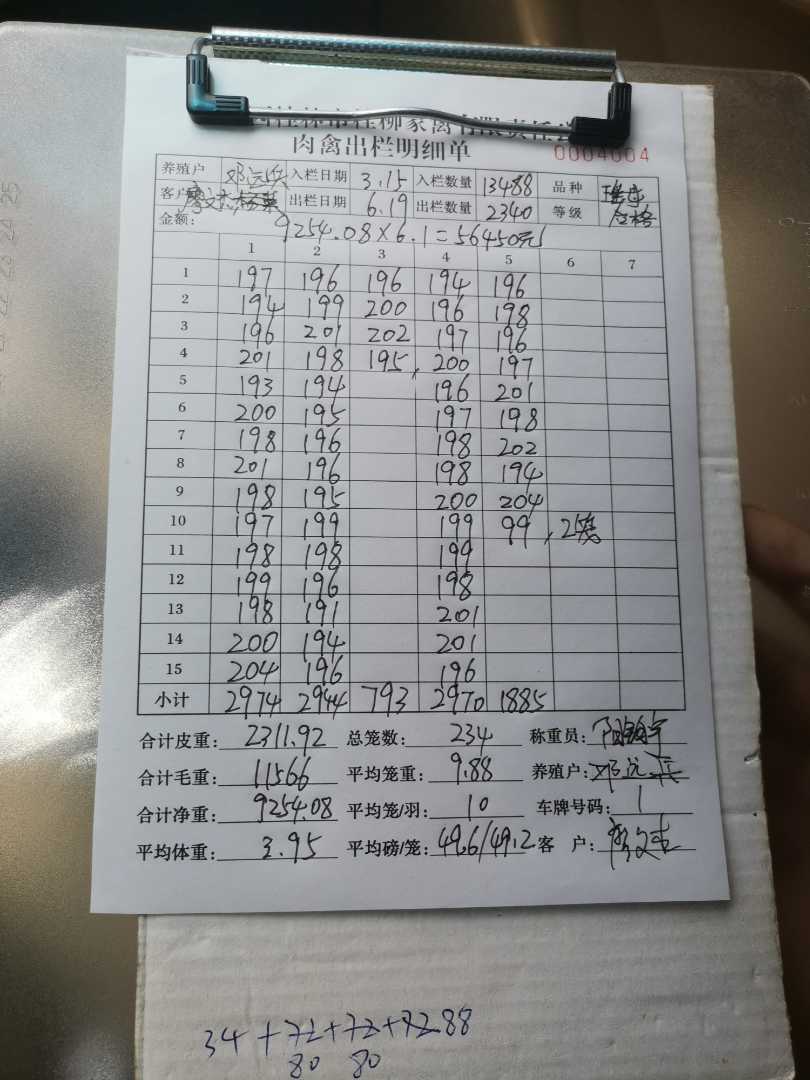 桂林市桂柳家禽有限责任公
肉禽出栏明细单 0004004
养殖户 邓远兵 入栏日期 3.15 入栏数量 13488 品种
客户 出栏日期 6.19 出栏数量 2340 等级 合格
金额: 9254.08×6.1=56450元
1 2 3 4 5 6 7
1 197 196 196 194 196
2 194 199 200 196 198
3 196 201 202 197 196
4 201 198 195, 200 197
5 193 194 196 201
6 200 195 197 198
7 198 196 198 202
8 201 196 198 194
9 198 195 200 204
10 197 199 199 99, 2笼
11 198 198 199
12 199 196 198
13 198 191 201
14 200 194 201
15 204 196 196
小计 2974 2944 793 2970 1885
合计皮重: 2311.92 总笼数: 234 称重员:
合计毛重: 11566 平均笼重: 9.88 养殖户: 邓远兵
合计净重: 9254.08 平均笼/羽: 10 车牌号码: 1
平均体重: 3.95 平均磅/笼: 49.6/49.2 客 户:
34+72+72+7288
80 80